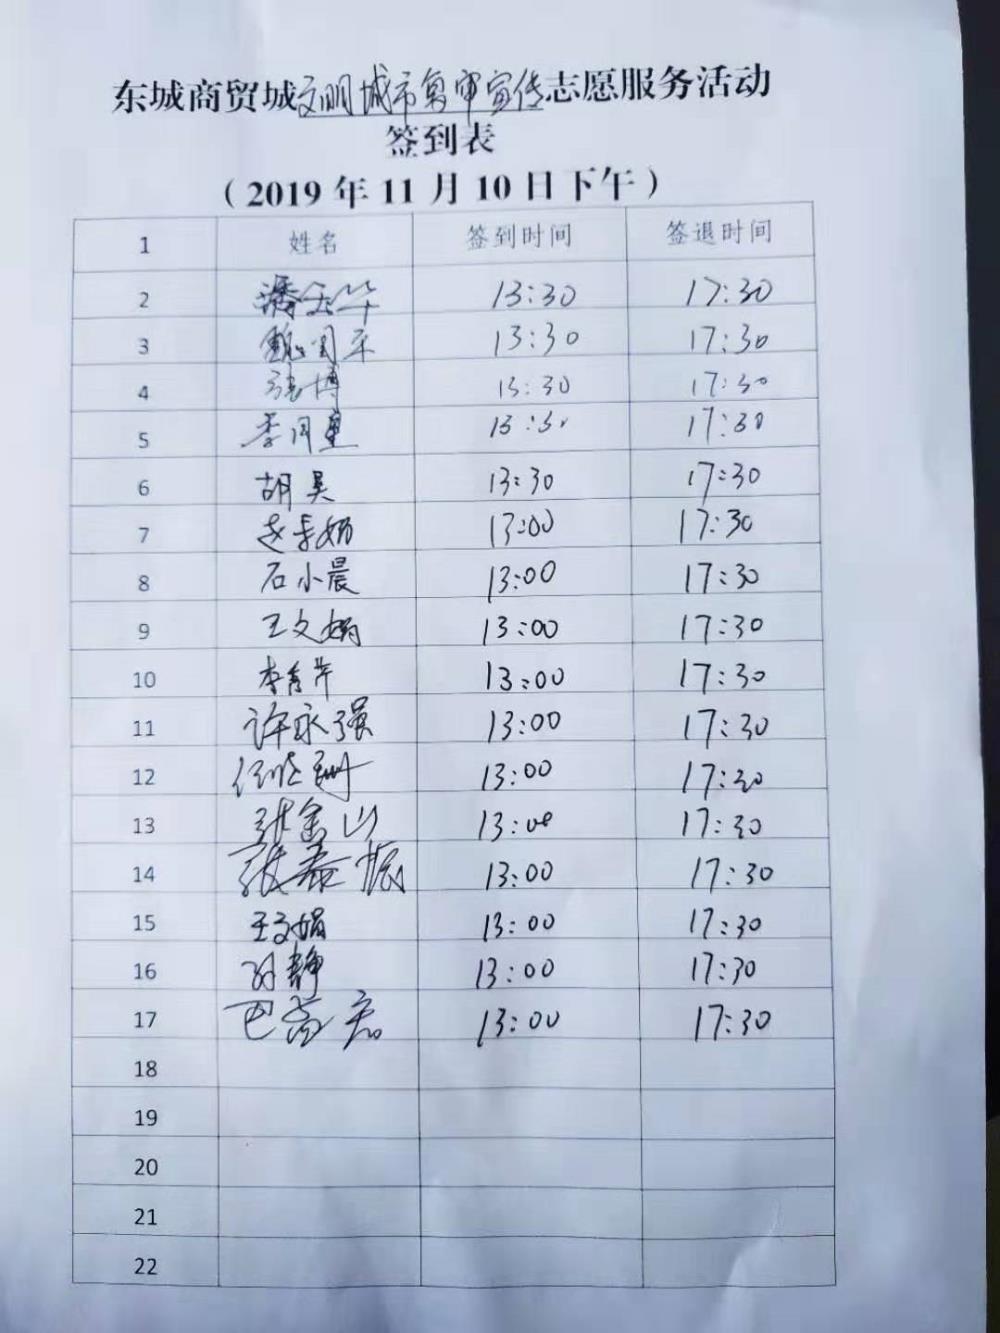 东城商贸城文明城市复审宣传志愿服务活动
签到表
（2019年11月10日下午）
1 姓名 签到时间 签退时间
2 潘玉华 13:30 17:30
3 魏周平 13:30 17:30
4 张博 13:30 17:30
5 李同重 13:30 17:30
6 胡昊 13:30 17:30
7 13:00 17:30
8 石小晨 13:00 17:30
9 王文娟 13:00 17:30
10 李青萍 13:00 17:30
11 许永强 13:00 17:30
12 13:00 17:30
13 张金山 13:00 17:30
14 张春振 13:00 17:30
15 王文娟 13:00 17:30
16 孙静 13:00 17:30
17 13:00 17:30
18
19
20
21
22